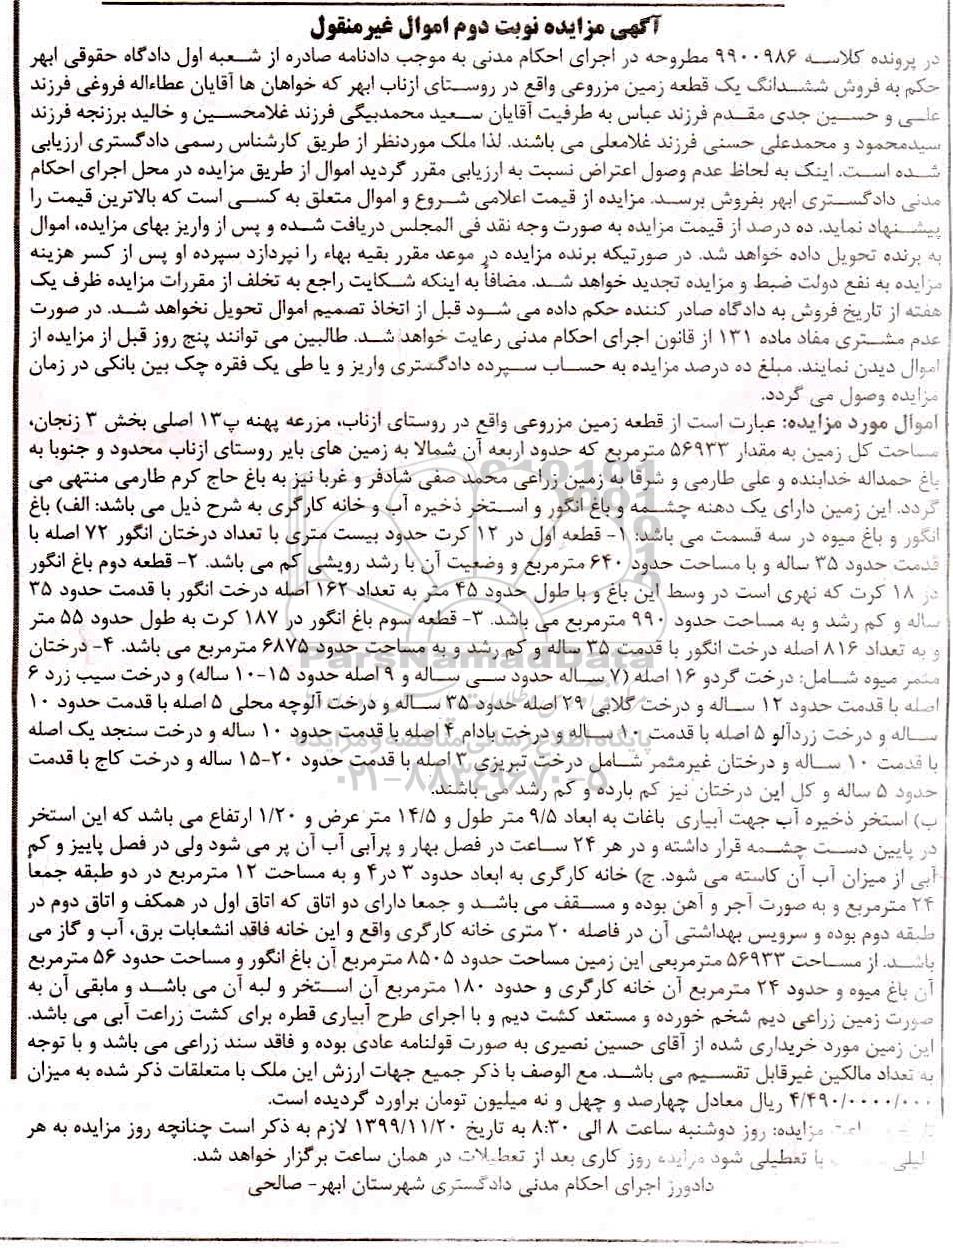 آگهی مزایده نوبت دوم اموال غیرمنقول
در پرونده کلاسه ۹۹۰۰۹۸۶ مطروحه در اجرای احکام مدنی به موجب دادنامه صادره از شعبه اول دادگاه حقوقی ابهر
حکم به فروش ششدانگ یک قطعه زمین مزروعی واقع در روستای ازناب ابهر که خواهان ها آقایان عطاءاله فروغی فرزند
علی و حسین جدی مقدم فرزند عباس به طرفیت آقایان سعید محمدبیگی فرزند غلامحسین و خالید برزنجه فرزند
سیدمحمود و محمدعلی حسنی فرزند غلامعلی می باشند. لذا ملک موردنظر از طریق کارشناس رسمی دادگستری ارزیابی
شده است. اینک به لحاظ عدم وصول اعتراض نسبت به ارزیابی مقرر گردید اموال از طریق مزایده در محل اجرای احکام
مدنی دادگستری ابهر بفروش برسد. مزایده از قیمت اعلامی شروع و اموال متعلق به کسی است که بالاترین قیمت را
پیشنهاد نماید. ده درصد از قیمت مزایده به صورت وجه نقد فی المجلس دریافت شده و پس از واریز بهای مزایده، اموال
به برنده تحویل داده خواهد شد. در صورتیکه برنده مزایده در موعد مقرر بقیه بهاء را نپردازد سپرده او پس از کسر هزینه
مزایده به نفع دولت ضبط و مزایده تجدید خواهد شد. مضافاً به اینکه شکایت راجع به تخلف از مقررات مزایده ظرف یک
هفته از تاریخ فروش به دادگاه صادر کننده حکم داده می شود قبل از اتخاذ تصمیم اموال تحویل نخواهد شد. در صورت
عدم مشتری مفاد ماده ۱۳۱ از قانون اجرای احکام مدنی رعایت خواهد شد. طالبین می توانند پنج روز قبل از مزایده از
اموال دیدن نمایند. مبلغ ده درصد مزایده به حساب سپرده دادگستری واریز و یا طی یک فقره چک بین بانکی در زمان
مزایده وصول می گردد.
اموال مورد مزایده: عبارت است از قطعه زمین مزروعی واقع در روستای ازناب، مزرعه پهنه پ۱۳ اصلی بخش ۳ زنجان،
مساحت کل زمین به مقدار ۵۶۹۳۳ مترمربع که حدود اربعه آن شمالا به زمین های بایر روستای ازناب محدود و جنوبا به
باغ حمداله خدابنده و علی طارمی و شرقا به زمین زراعی محمد صفی شادفر و غربا نیز به باغ حاج کرم طارمی منتهی می
گردد. این زمین دارای یک دهنه چشمه و باغ انگور و استخر ذخیره آب و خانه کارگری به شرح ذیل می باشد: الف) باغ
انگور و باغ میوه در سه قسمت می باشد: ۱- قطعه اول در ۱۲ کرت حدود بیست متری با تعداد درختان انگور ۷۲ اصله با
قدمت حدود ۳۵ ساله و با مساحت حدود ۶۴۰ مترمربع و وضعیت آن با رشد رویشی کم می باشد. ۲- قطعه دوم باغ انگور
در ۱۸ کرت که نهری است در وسط این باغ و با طول حدود ۴۵ متر به تعداد ۱۶۲ اصله درخت انگور با قدمت حدود ۳۵
ساله و کم رشد و به مساحت حدود ۹۹۰ مترمربع می باشد. ۳- قطعه سوم باغ انگور در ۱۸۷ کرت به طول حدود ۵۵ متر
و به تعداد ۸۱۶ اصله درخت انگور با قدمت ۳۵ ساله و کم رشد و به مساحت حدود ۶۸۷۵ مترمربع می باشد. ۴- درختان
مثمر میوه شامل: درخت گردو ۱۶ اصله (۷ ساله حدود سی ساله و ۹ اصله حدود ۱۵-۱۰ ساله) و درخت سیب زرد ۶
اصله با قدمت حدود ۱۲ ساله و درخت گلابی ۲۹ اصله حدود ۳۵ ساله و درخت آلوچه محلی ۵ اصله با قدمت حدود ۱۰
ساله و درخت زردآلو ۵ اصله با قدمت ۱۰ ساله و درخت بادام ۴ اصله با قدمت حدود ۱۰ ساله و درخت سنجد یک اصله
با قدمت ۱۰ ساله و درختان غیرمثمر شامل درخت تبریزی ۳ اصله با قدمت حدود ۲۰-۱۵ ساله و درخت کاج با قدمت
حدود ۵ ساله و کل این درختان نیز کم بارده و کم رشد می باشند.
ب) استخر ذخیره آب جهت آبیاری باغات به ابعاد ۹/۵ متر طول و ۱۴/۵ متر عرض و ۱/۲۰ ارتفاع می باشد که این استخر
در پایین دست چشمه قرار داشته و در هر ۲۴ ساعت در فصل بهار و پرآبی آب آن پر می شود ولی در فصل پاییز و کم
آبی از میزان آب آن کاسته می شود. ج) خانه کارگری به ابعاد حدود ۳ در۴ و به مساحت ۱۲ مترمربع در دو طبقه جمعاً
۲۴ مترمربع و به صورت آجر و آهن بوده و مسقف می باشد و جمعا دارای دو اتاق که اتاق اول در همکف و اتاق دوم در
طبقه دوم بوده و سرویس بهداشتی آن در فاصله ۲۰ متری خانه کارگری واقع و این خانه فاقد انشعابات برق، آب و گاز می
باشد. از مساحت ۵۶۹۳۳ مترمربعی این زمین مساحت حدود ۸۵۰۵ مترمربع آن باغ انگور و مساحت حدود ۵۶ مترمربع
آن باغ میوه و حدود ۲۴ مترمربع آن خانه کارگری و حدود ۱۸۰ مترمربع آن استخر و لبه آن می باشد و مابقی آن به
صورت زمین زراعی دیم شخم خورده و مستعد کشت دیم و با اجرای طرح آبیاری قطره برای کشت زراعت آبی می باشد.
این زمین مورد خریداری شده از آقای حسین نصیری به صورت قولنامه عادی بوده و فاقد سند زراعی می باشد و با توجه
به تعداد مالکین غیرقابل تقسیم می باشد. مع الوصف با ذکر جمیع جهات ارزش این ملک با متعلقات ذکر شده به میزان
۴/۴۹۰/۰۰۰۰/۰۰۰ ریال معادل چهارصد و چهل و نه میلیون تومان براورد گردیده است.
مزایده: روز دوشنبه ساعت ۸ الی ۸:۳۰ به تاریخ ۱۳۹۹/۱۱/۲۰ لازم به ذکر است چنانچه روز مزایده به هر
با تعطیلی شود مزایده روز کاری بعد از تعطیلات در همان ساعت برگزار خواهد شد.
دادورز اجرای احکام مدنی دادگستری شهرستان ابهر- صالحی
ParsNamadData
پایگاه اطلاع رسانی مناقصه و مزایده
۰۲۱-۸۸۳۴۹۶۷۰-۵